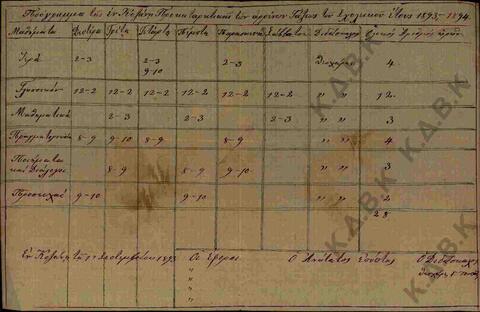 Πρόγραμμα τῆς ἐν Κοζάνῃ Προκαταρκτικῆς τῶν ἀρρένων Τάξεως τοῦ Σχολικοῦ Ἔτους 1893-1894.
Μαθήματα Δευτέρα Τρίτη Τετάρτη Πέμπτη Παρασκευή Σάββατον Διδάσκαλοι Ὁλικὸς Ἀριθμὸς ὡρῶν
Ἱερά 2-3 2-3 2-3 4
9-10
12-2 12-2 12-2 12-2 12-2 12-2 " " 12
Μαθηματικά 2-3 2-3 2-3 " " 3
8-9 9-10 8-9 8-9 " " 4
Ποιήματα
καὶ Διάλογοι 8-9 8-9 9-10 " " 3
9-10 9-10 " " 2
28
Ἐν Κοζάνῃ τῇ Σεπτεμβρίου 1893 Οἱ Ἔφοροι Ὁ Ἀνώτατος Ἐπόπτης Ὁ Διδάσκαλος
"
"
"
Κ.Δ.Β.Κ
Κ.Δ.Β.Κ
Κ.Δ.Β.Κ
Κ.Δ.Β.Κ